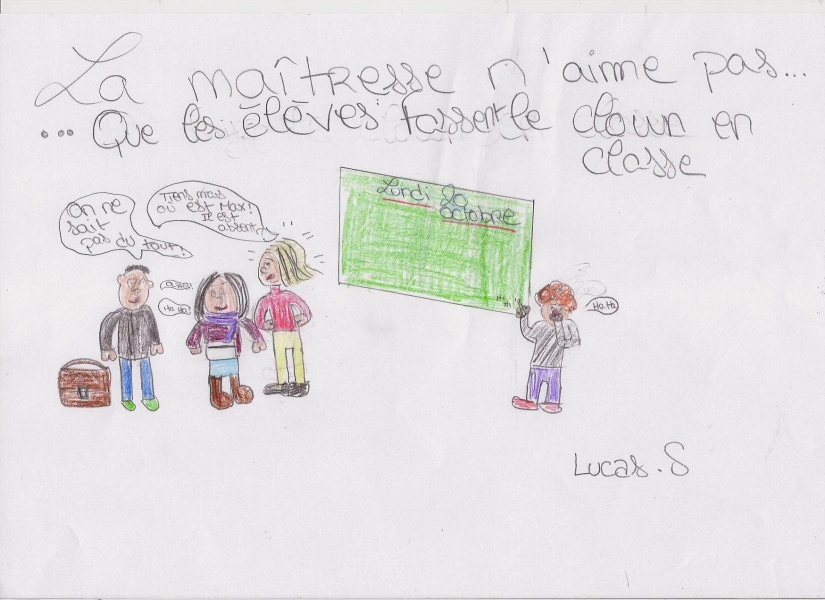 La maîtresse n'aime pas...
... Que les élèves fassent le clown en
classe
On ne
sait
pas du tout!
Tiens mais
où est Max!
Il est
absent?
Ha Ha!
Lundi 20
octobre
Ha Ha
Lucas.S